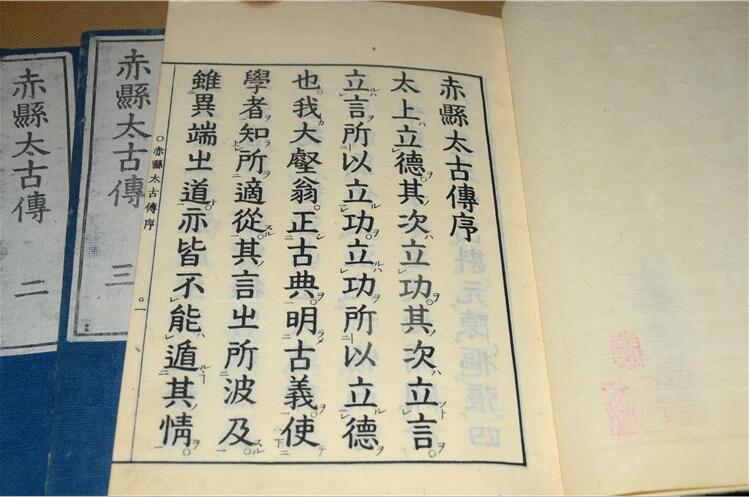 赤縣太古傳序
太上立德其次立功其次立言
立言所以立功立功所以立德
也我大壑翁正古典明古義使
學者知所適從其言出所波及
雖異端出道亦皆不能遁其情
赤縣太古傳序 一
赤縣太古傳 三
赤縣太古傳 二